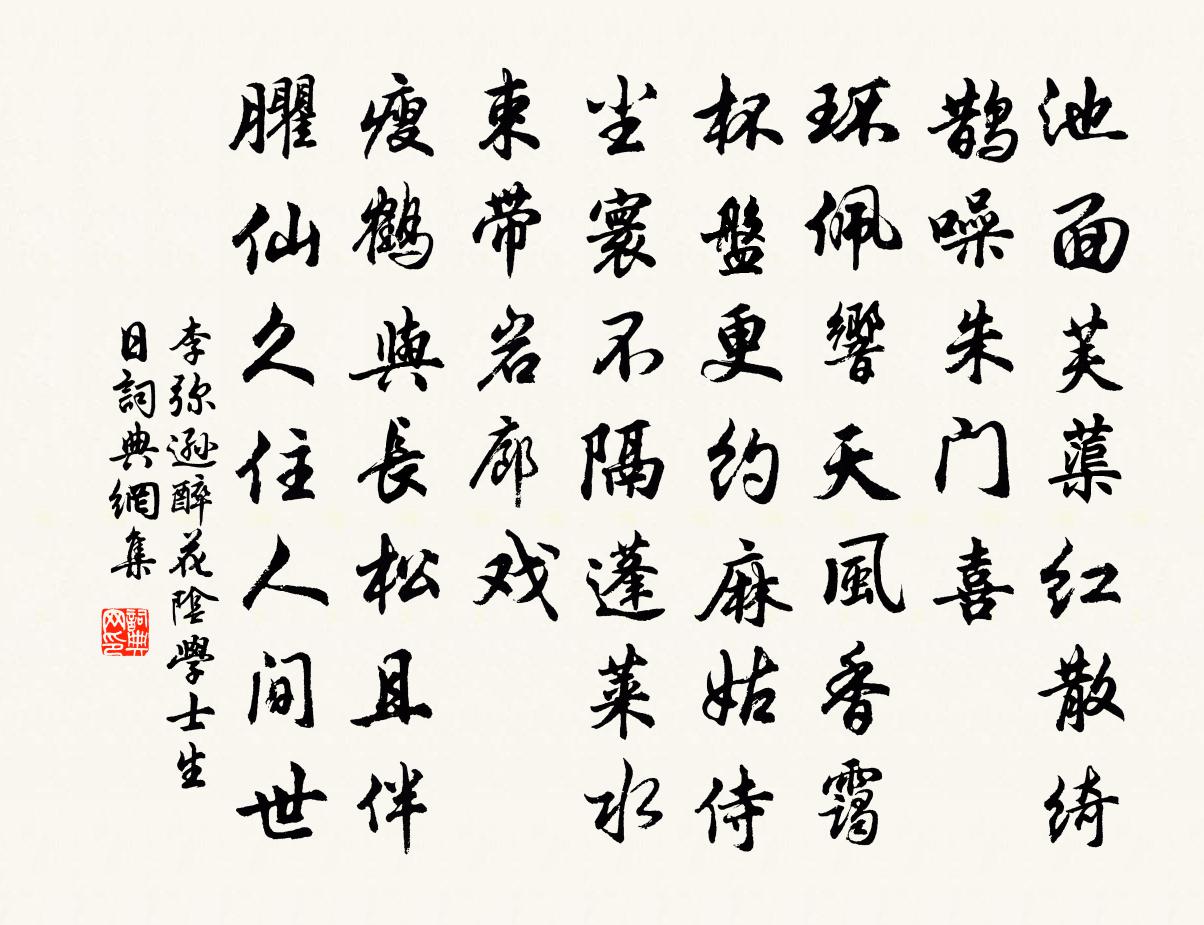 池面芙蕖红散绮
鹊噪朱门喜
环佩響天風香霭
杯盤更约麻姑侍
尘寰不隔蓬莱水
束带岩廊戏
瘦鹤與長松且伴
臞仙久住人间世
李弥遜醉花陰學士生
日詞典網集
詞典網印